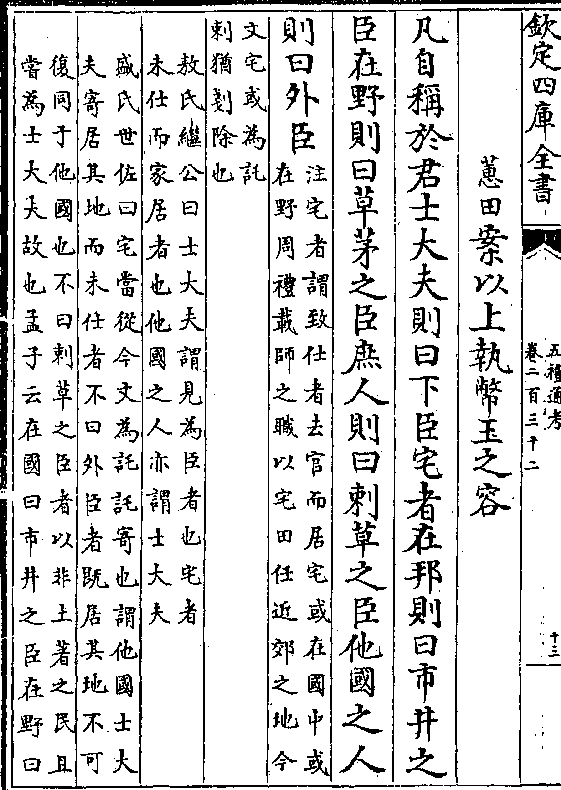 欽定四庫全書
五禮通考
卷二百三十二
十三
蕙田案以上執幣玉之容
凡自稱於君士大夫則曰下臣宅者在邦則曰市井之
臣在野則曰草茅之臣庶人則曰刺草之臣他國之人
則曰外臣
注宅者謂致仕者去官而居宅或在國中或
在野周禮載師之職以宅田任近郊之地今
文宅或為託
刺猶剗除也
敖氏繼公曰士大夫謂見為臣者也宅者
未仕而家居者也他國之人亦謂士大夫
盛氏世佐曰宅當從今文為託託寄也謂他國士大
夫寄居其地而未仕者不曰外臣者既居其地不可
復同于他國也不曰刺草之臣者以非土著之民且
嘗為士大夫故也孟子云在國曰市井之臣在野曰